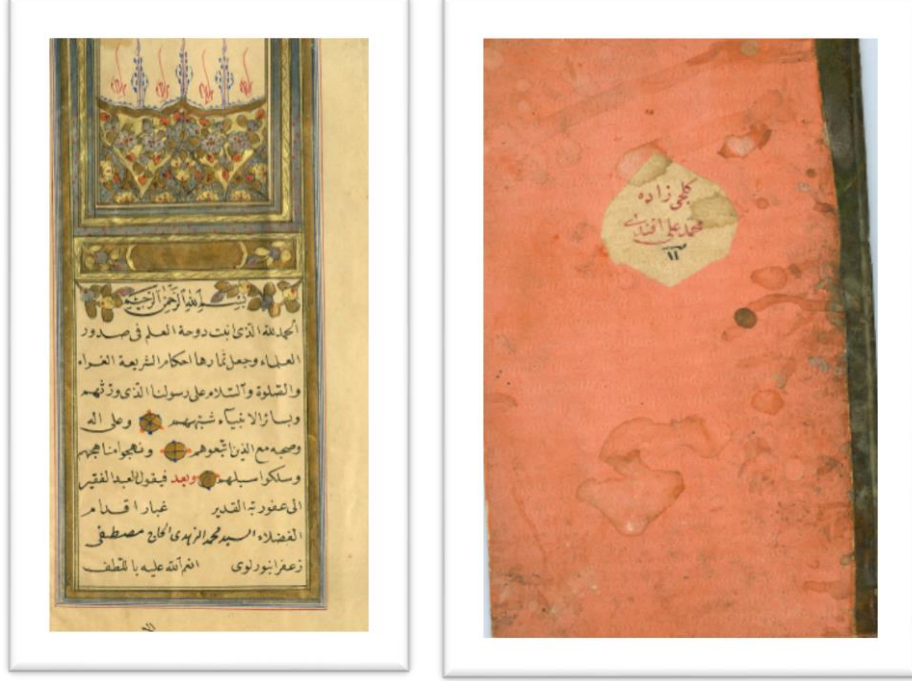 بسم الله الرحمن الرحيم
الحمد لله الذى انبت دوحة العلم فى صدور
العلماء وجعل ثمارها احكام الشريعة الغراء
والصلوة والسلام على رسولنا الذى
وبسائر الانبياء وعلى اله
وصحبه مع الذين اتبعوهم ونهجوا مناهجهم
وسلكوا سبلهم وبعد فيقول العبد الفقير
الى عفو ربه القدير غبار اقدام
الفضلاء السيد محمد الزهدى الحاج مصطفى
زعفرانبورلوى انعم الله عليه باللطف
زاده
محمد على افندى
١١